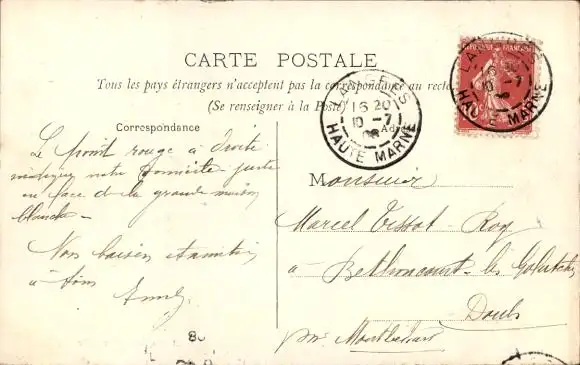 CARTE POSTALE
Tous les pays étrangers n'acceptent pas la correspondance au recto
(Se renseigner à la Poste)
Correspondance
Adresse
LANGRES
16 20
10 -7
08
HAUTE MARNE
LANGRES
10 -7
HAUTE MARNE
Le point rouge à droite
indique notre domicile juste
en face de la grande maison
blanche -
Nos baisers et amitiés
à tous
Monsieur
Marcel Tissot - Roy
à Bethoncourt - les
Doubs
par Montbéliard
08